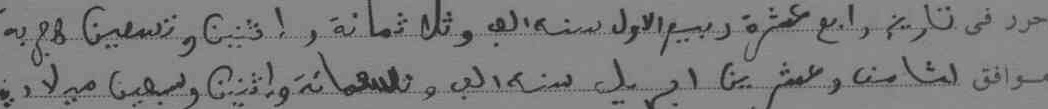 حرر فى تاريخ رابع عشرة ربيع الاول سنه الف وثلاثمائة وإثنين وتسعين هجرية
موافق لثامن وعشرين ابريل سنه الف وتسعمائة وإثنين وسبعين ميلادية